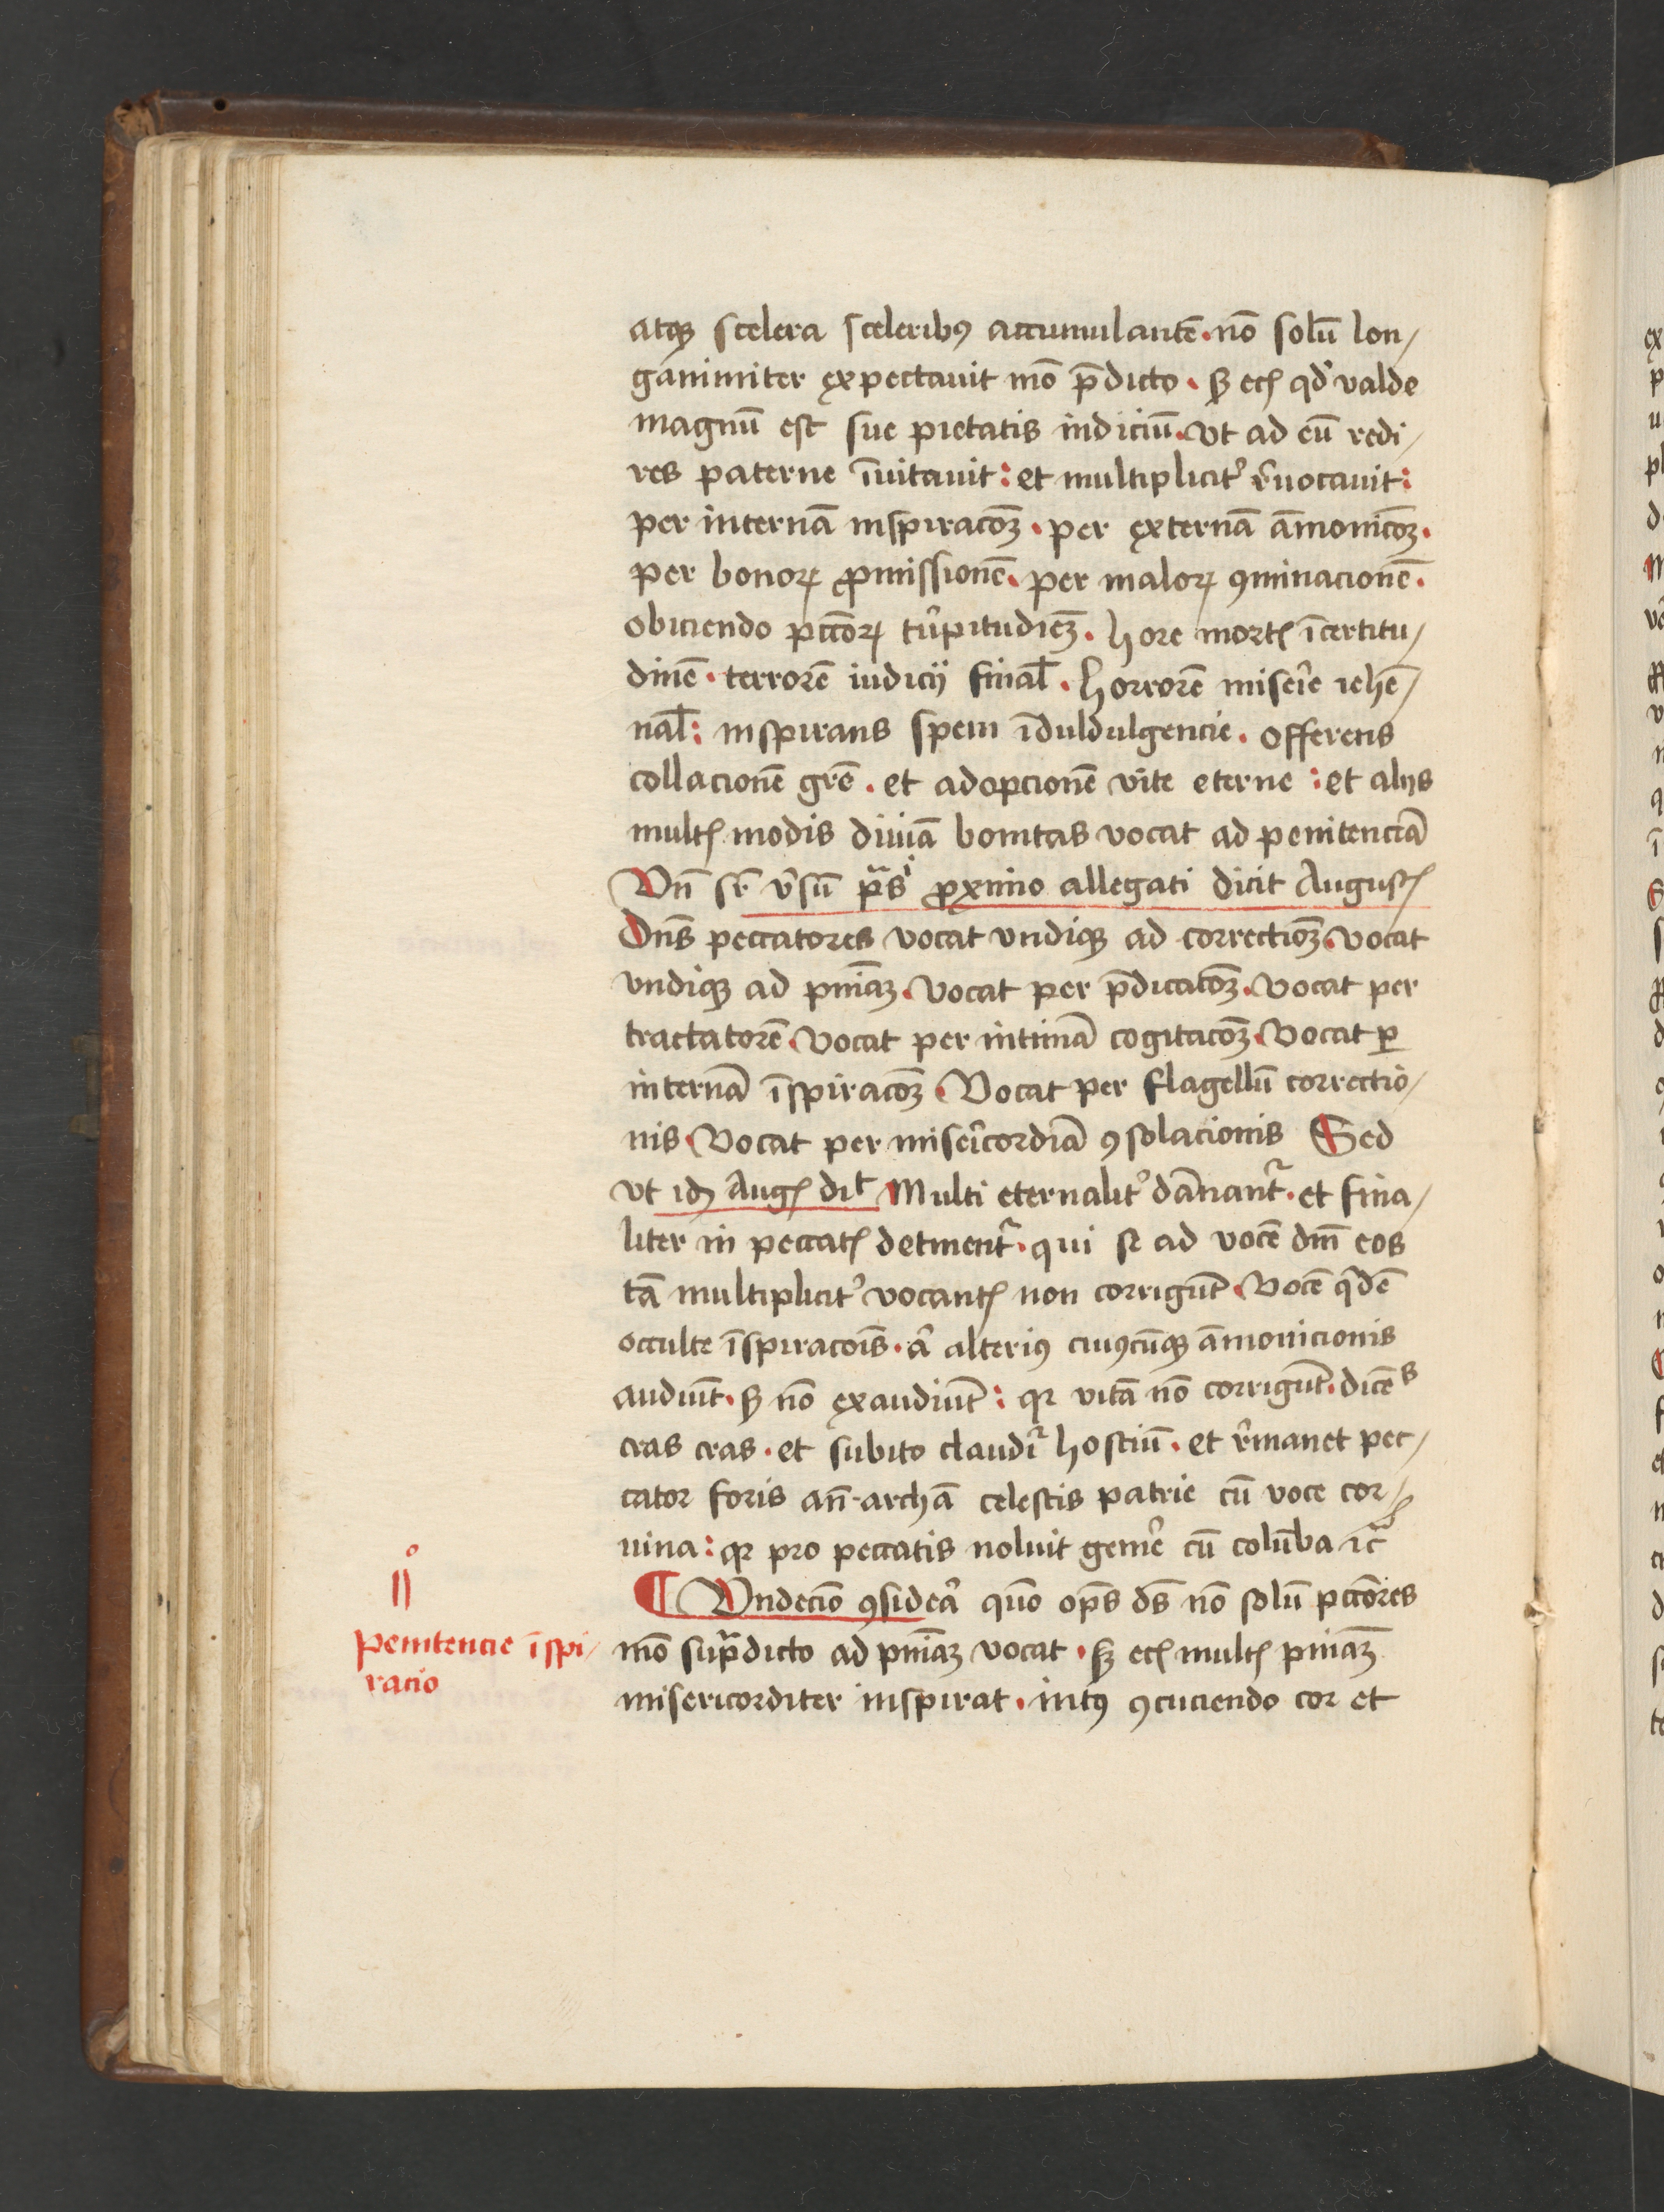 atqꝫ scelera sceleribꝰ accumulantē · nō solū lon/
ganimiter expectauit mō p̄dicto · sꝫ ecꝭ qd' valde
magnū est sue pietatis indiciū · vt ad eū redi/
res paterne īuitauit : et multiplicit' r̄uocauit :
per internā inspiracōꝫ · per externā āmonicōꝫ ·
per bonoꝝ ꝓmissionē · per maloꝝ ꝯminacionē ·
obiciendo pccōꝝ tu'pitudīeꝫ · hore mortꝭ īcertitu/
dinē · terrorē iudicij final̄ · horrorē miser'ie iehē/
nal̄ : inspirans spem īduldulgencie · offerens
collacionē gr̄e · et adopcionē vite eterne : et alijs
multꝭ modis diuīa bonitas vocat ad penitenciā
Vn̄ sr̄ v'sū p̄sⁱ ꝓximo allegati dicit Augustꝭ
Dn̄s peccatores vocat vndiqꝫ ad correctiōꝫ · vocat
vndiqꝫ ad pn̄iaꝫ · vocat per p̄dicacōꝫ · vocat per
tractatorē · vocat per intimā cogitacōꝫ · vocat ꝑ
internā īspiracōꝫ · Vocat per flagellū correctio/
nis · vocat per miser'icordiā ꝯsolacionis Sed
vt idꝫ Augꝭ dit̄ Multi eternalit' dānant᷑ · et fina/
liter in peccatꝭ detinent᷑ · qui se ad vocē dn̄i eos
tā multiplicit' vocantꝭ non corrigūt · Vocē qⁱdē
occulte īspiracōis · aᵗ alteriꝰ cuiꝰcūqꝫ āmonicionis
audiūt · sꝫ nō exaudiūt : qꝛ vitā nō corrigūt · dicēˢ
cras cras · et subito claudit᷑ hostiū · et r̄manet pec/
cator foris an̄ · archā celestis patrie cū voce cor/
uina : qꝛ pro peccatis noluit gemer' cū colūba ⁊c̄
¶ Vndecīo ꝯsider'a quō op̄s ds̄ nō solū pccōres
mō sup̄dicto ad pn̄iaꝫ vocat · sꝫ ecꝭ multꝭ pn̄iaꝫ
misericorditer inspirat · intꝰ ꝯcuciendo cor et
11°
penitencie īspi/
racio